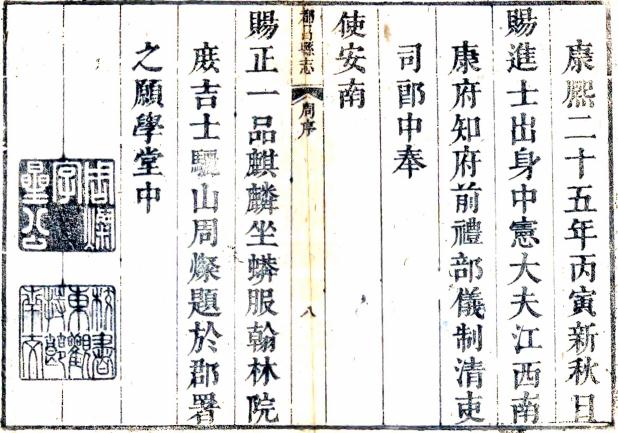 康熙二十五年丙寅新秋日
賜進士出身中憲大夫江西南
康府知府前禮部儀制清吏
司郎中奉
使安南
都昌縣志
周序
八
賜正一品麒麟坐蟒服翰林院
庶吉士驪山周燦題於郡署
之願學堂中
周燦字星公
校書東觀持節